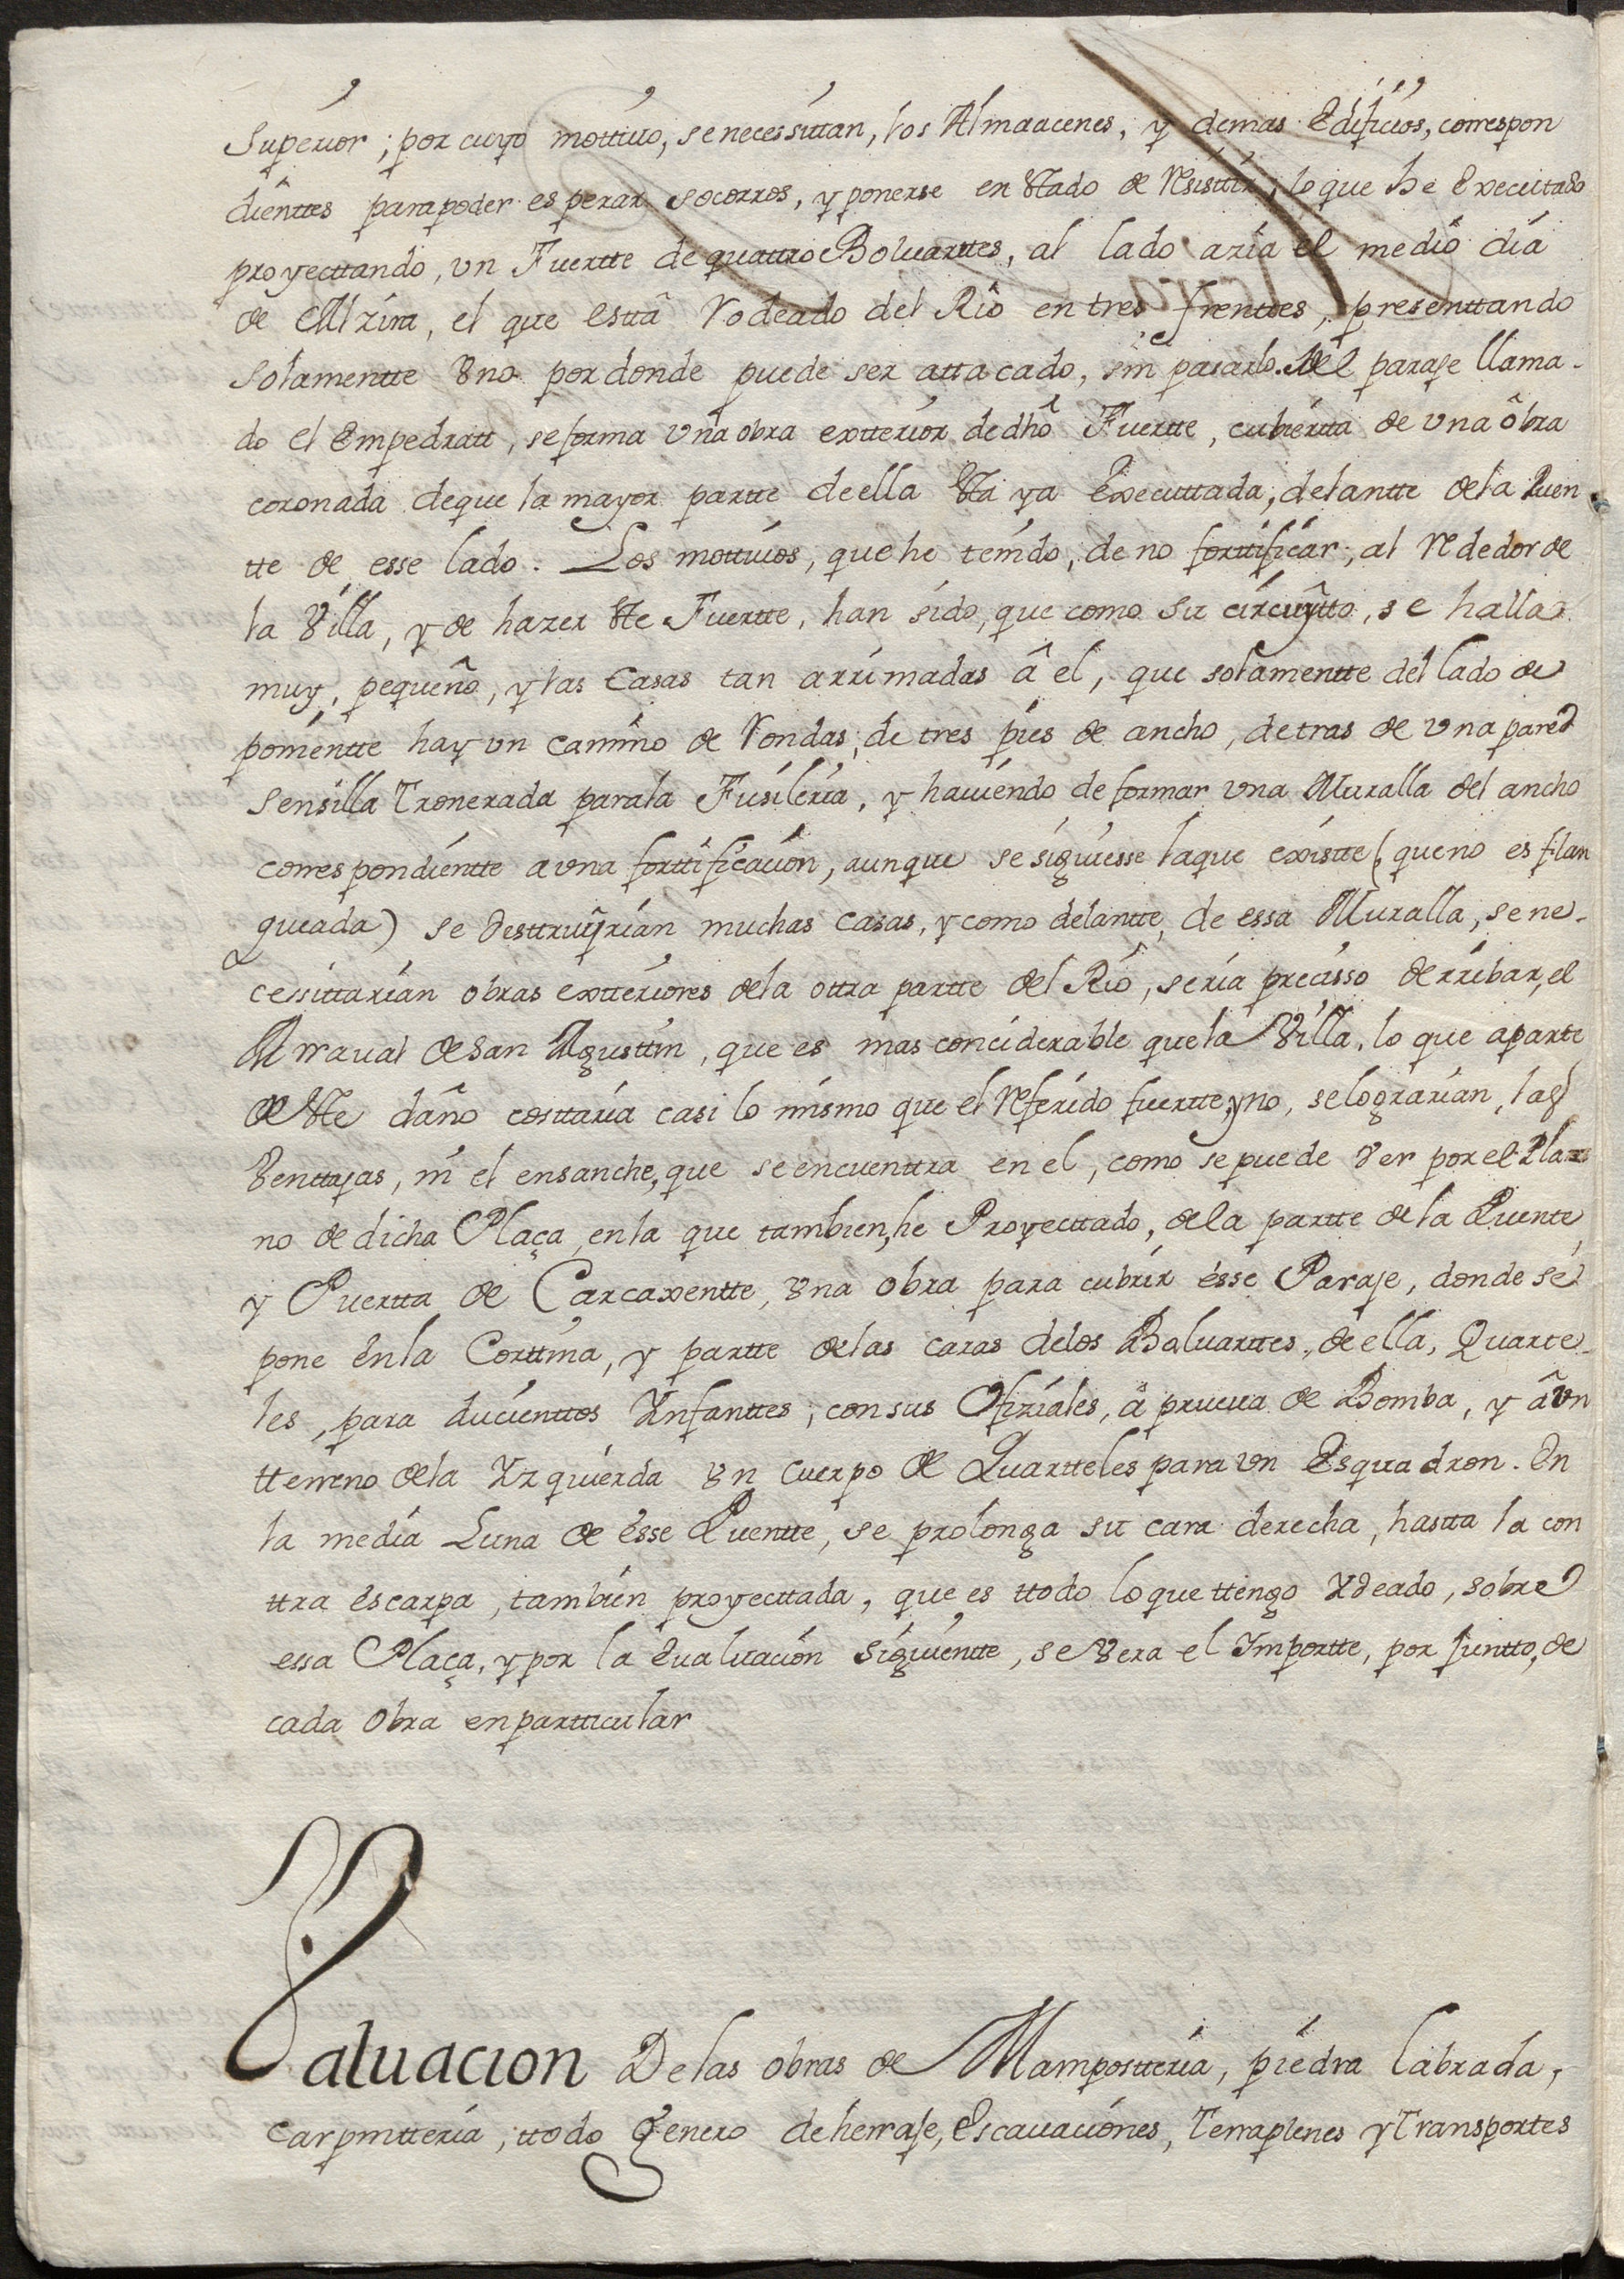 Superior; por cuyo mottiuo, se necessittan, los Almaacenes, y demas Edificios, correspon
dienttes para poder esperar socorros, y ponerse en Estado de Resisttir, lo que he Execcuttado
proyecttando, vn Fuertte de quattro Boluarttes, al lado azia el medio dia
de Alzira, el que estta Rodeado del Rio en tres frenttes, presenttando
solamentte Vno por donde puede ser attacado, sin pasarlo. Al paraje llama-
do el Empedratt, se forma vna obra extterior de dho Fuertte, cubiertta de vna obra
coronada de que la mayor partte de ella Esta ya Executtada, delantte de la Puen
tte de esse lado. Los mottiuos, que he tenido, de no forttificar, al Rededor de
la Villa, y de hazer Este Fuertte, han sido, que como su circuytto, se halla
muy, pequeño, y las Casas tan arrimadas â el, que solamentte del lado de
ponientte hay vn camino de Rondas, de tres pies de ancho, detras de vna pared
sensilla Tronerada para la Fusileria, y hauiendo de formar vna Muralla del ancho
correspondientte a vna forttificacion, aunque se siguiesse la que existte (que no es flan
queada) se desttruyrian muchas casas, y como delantte, de essa Muralla, se ne-
cessittarian obras extteriores de la ottra partte del Rio, seria precisso derribar, el
Arraual de San Agusttin, que es mas conciderable que la Villa, lo que aparte
de Este daño costtaria casi lo mismo que el Referido fuertte, y no, se lograrian, las
Venttajas, ni el ensanche, que se encuenttra en el, como se puede Ver por el Pla
no de dicha Plaça, en la que tambien, he Proyecttado, de la partte de la Puente,
y Puertta de Carcaxentte, Vna obra para cubrir esse Paraje, donde se
pone en la Corttina, y partte de las caras de los Baluarttes, de ella, Quarte-
les, para ducienttos Ynfanttes, con sus Ofiziales, â prueua de Bomba, y â vn
tterreno de la Yzquierda Vn cuerpo de Quartteles para vn Esquadron. En
la media Luna de esse Puentte, se prolonga su cara derecha, hastta la con
ttra escarpa, tambien proyecttada, que es ttodo lo que ttengo Ydeado, sobre
essa Plaça, y por la Eualuacion siguientte, se Vera el Importte, por juntto, de
cada obra en partticular
Valuacion De las obras de Mampostteria, piedra labrada,
Carpintteria, ttodo Genero de herraje, Escauaciones, Terraplenes y Transportes